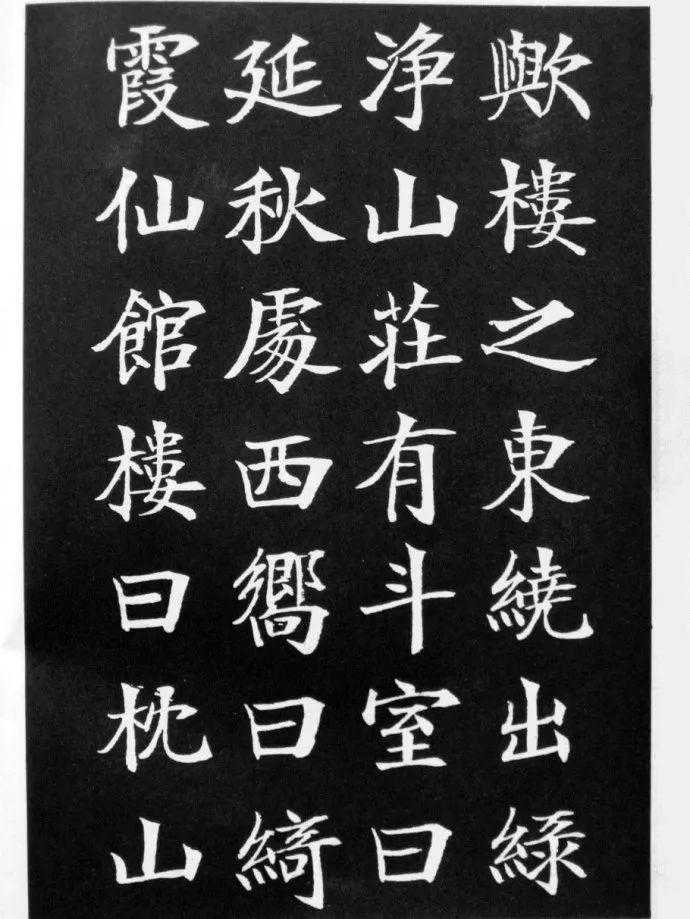 歟樓之東繞出綠
净山莊有斗室曰
延秋處西嚮曰綺
霞仙館樓曰枕山